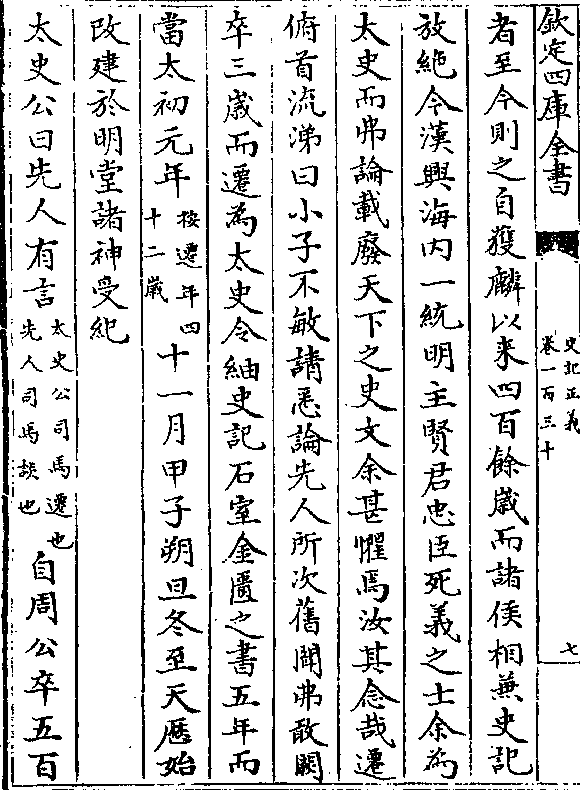 欽定四庫全書
史記正義
卷一百三十
七
者至今則之自獲麟以来四百餘嵗而諸侯相兼史記
放絶今漢興海内一統明主賢君忠臣死義之士余為
太史而弗論載廢天下之史文余甚懼焉汝其念哉遷
俯首流涕曰小子不敏請悉論先人所次舊聞弗敢闕
卒三嵗而遷為太史令紬史記石室金匱之書五年而
當太初元年按遷年四十二嵗十一月甲子朔旦冬至天厯始
改建於明堂諸神受紀
太史公曰先人有言太史公司馬遷也先人司馬談也自周公卒五百